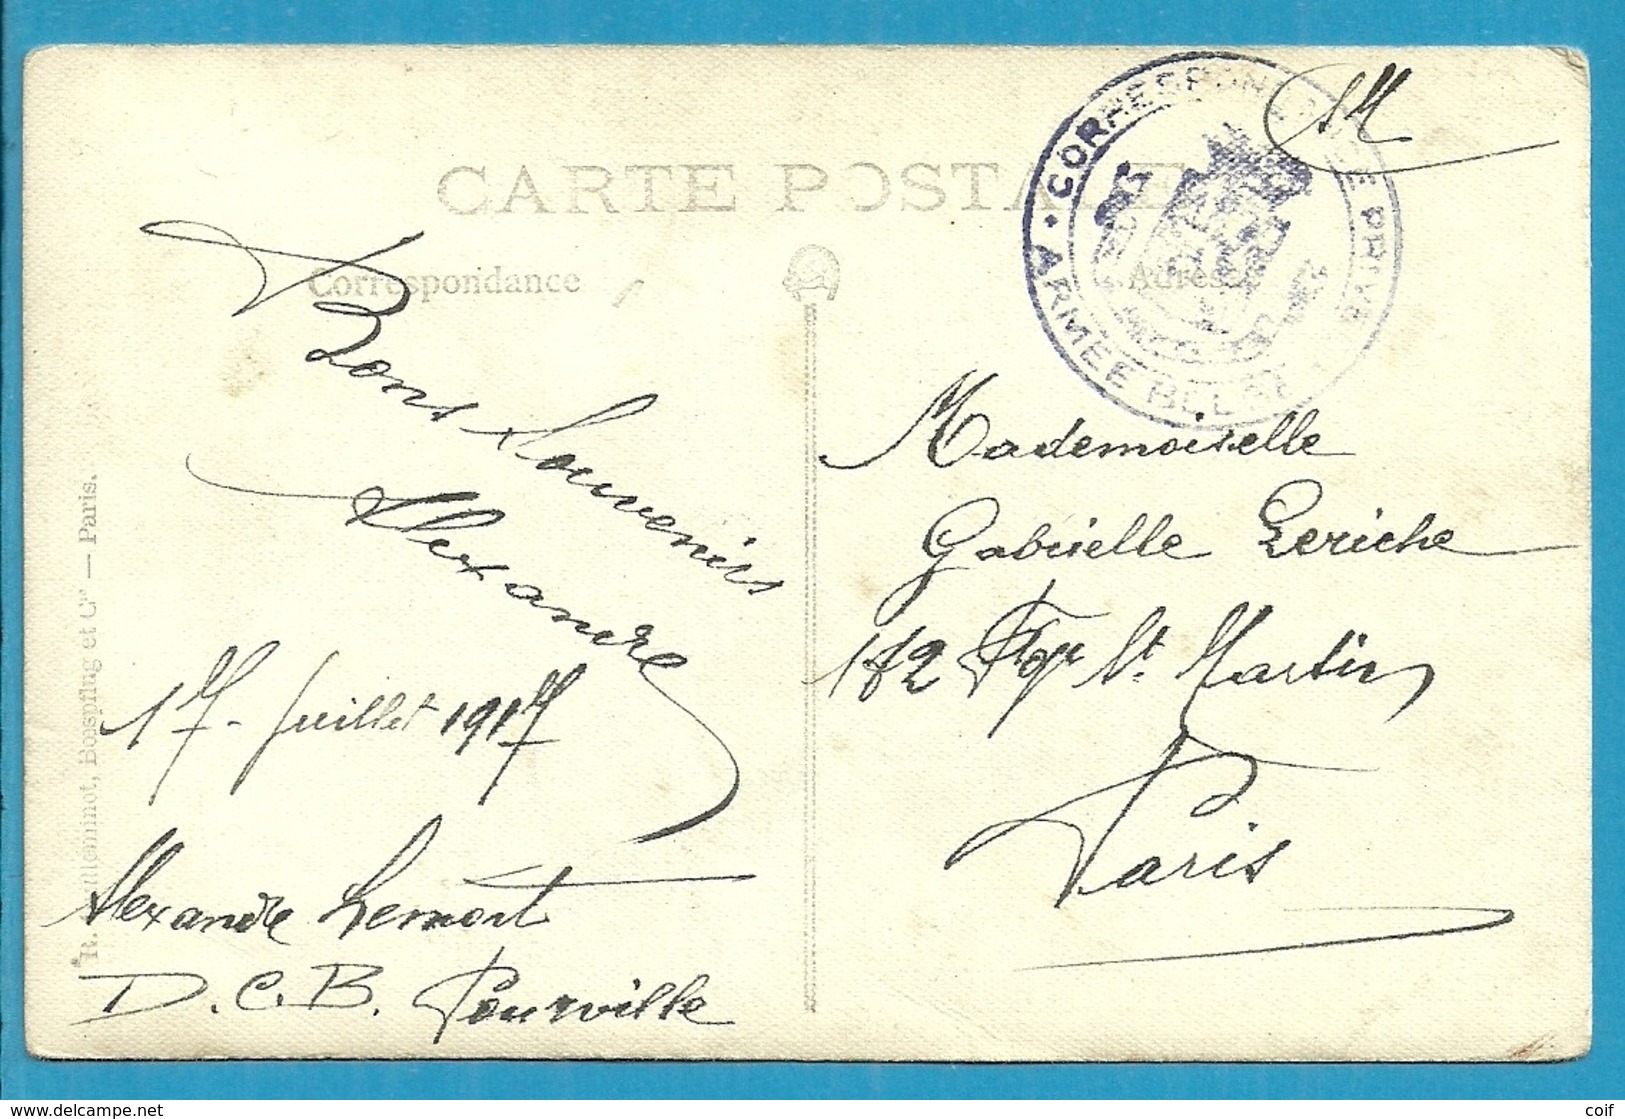 CARTE POSTALE
Correspondance
Adresse
CORRESPONDANCE PRIVÉE
ARMÉE BELGE
SM
Bons Souvenirs
Alexandre
17 - Juillet 1917
Alexandre Lemort
D.C.B. Pourville
Mademoiselle
Gabrielle Leriche
172 Fg St. Martin
Paris
R. Guilleminot, Bœspflug et Cie — Paris.
www.delcampe.net
coif